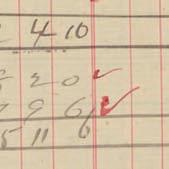 4 10
2 0 ✓
9 6 ✓
5 11 6